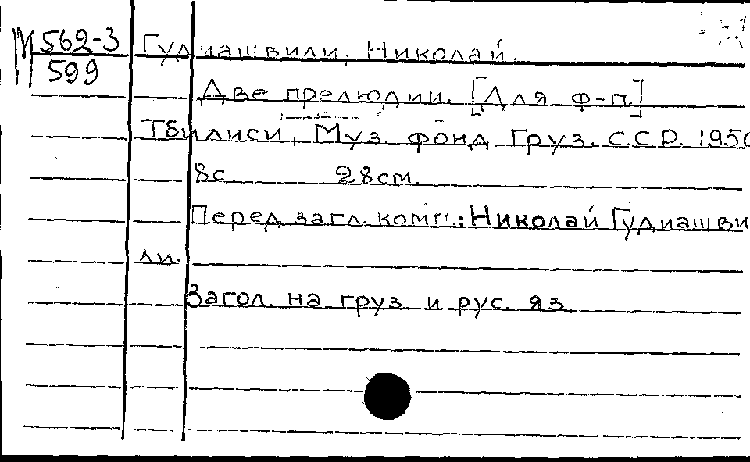 М 562-3
599
Гудиашвили, Николай.
Две прелюдии. [Для ф-п.]
Тбилиси, Муз. фонд Груз. С.С.Р. 1950
8с 28см.
Перед загл. комп.: Николай Гудиашви
ли.
Загол. на груз. и рус. яз.